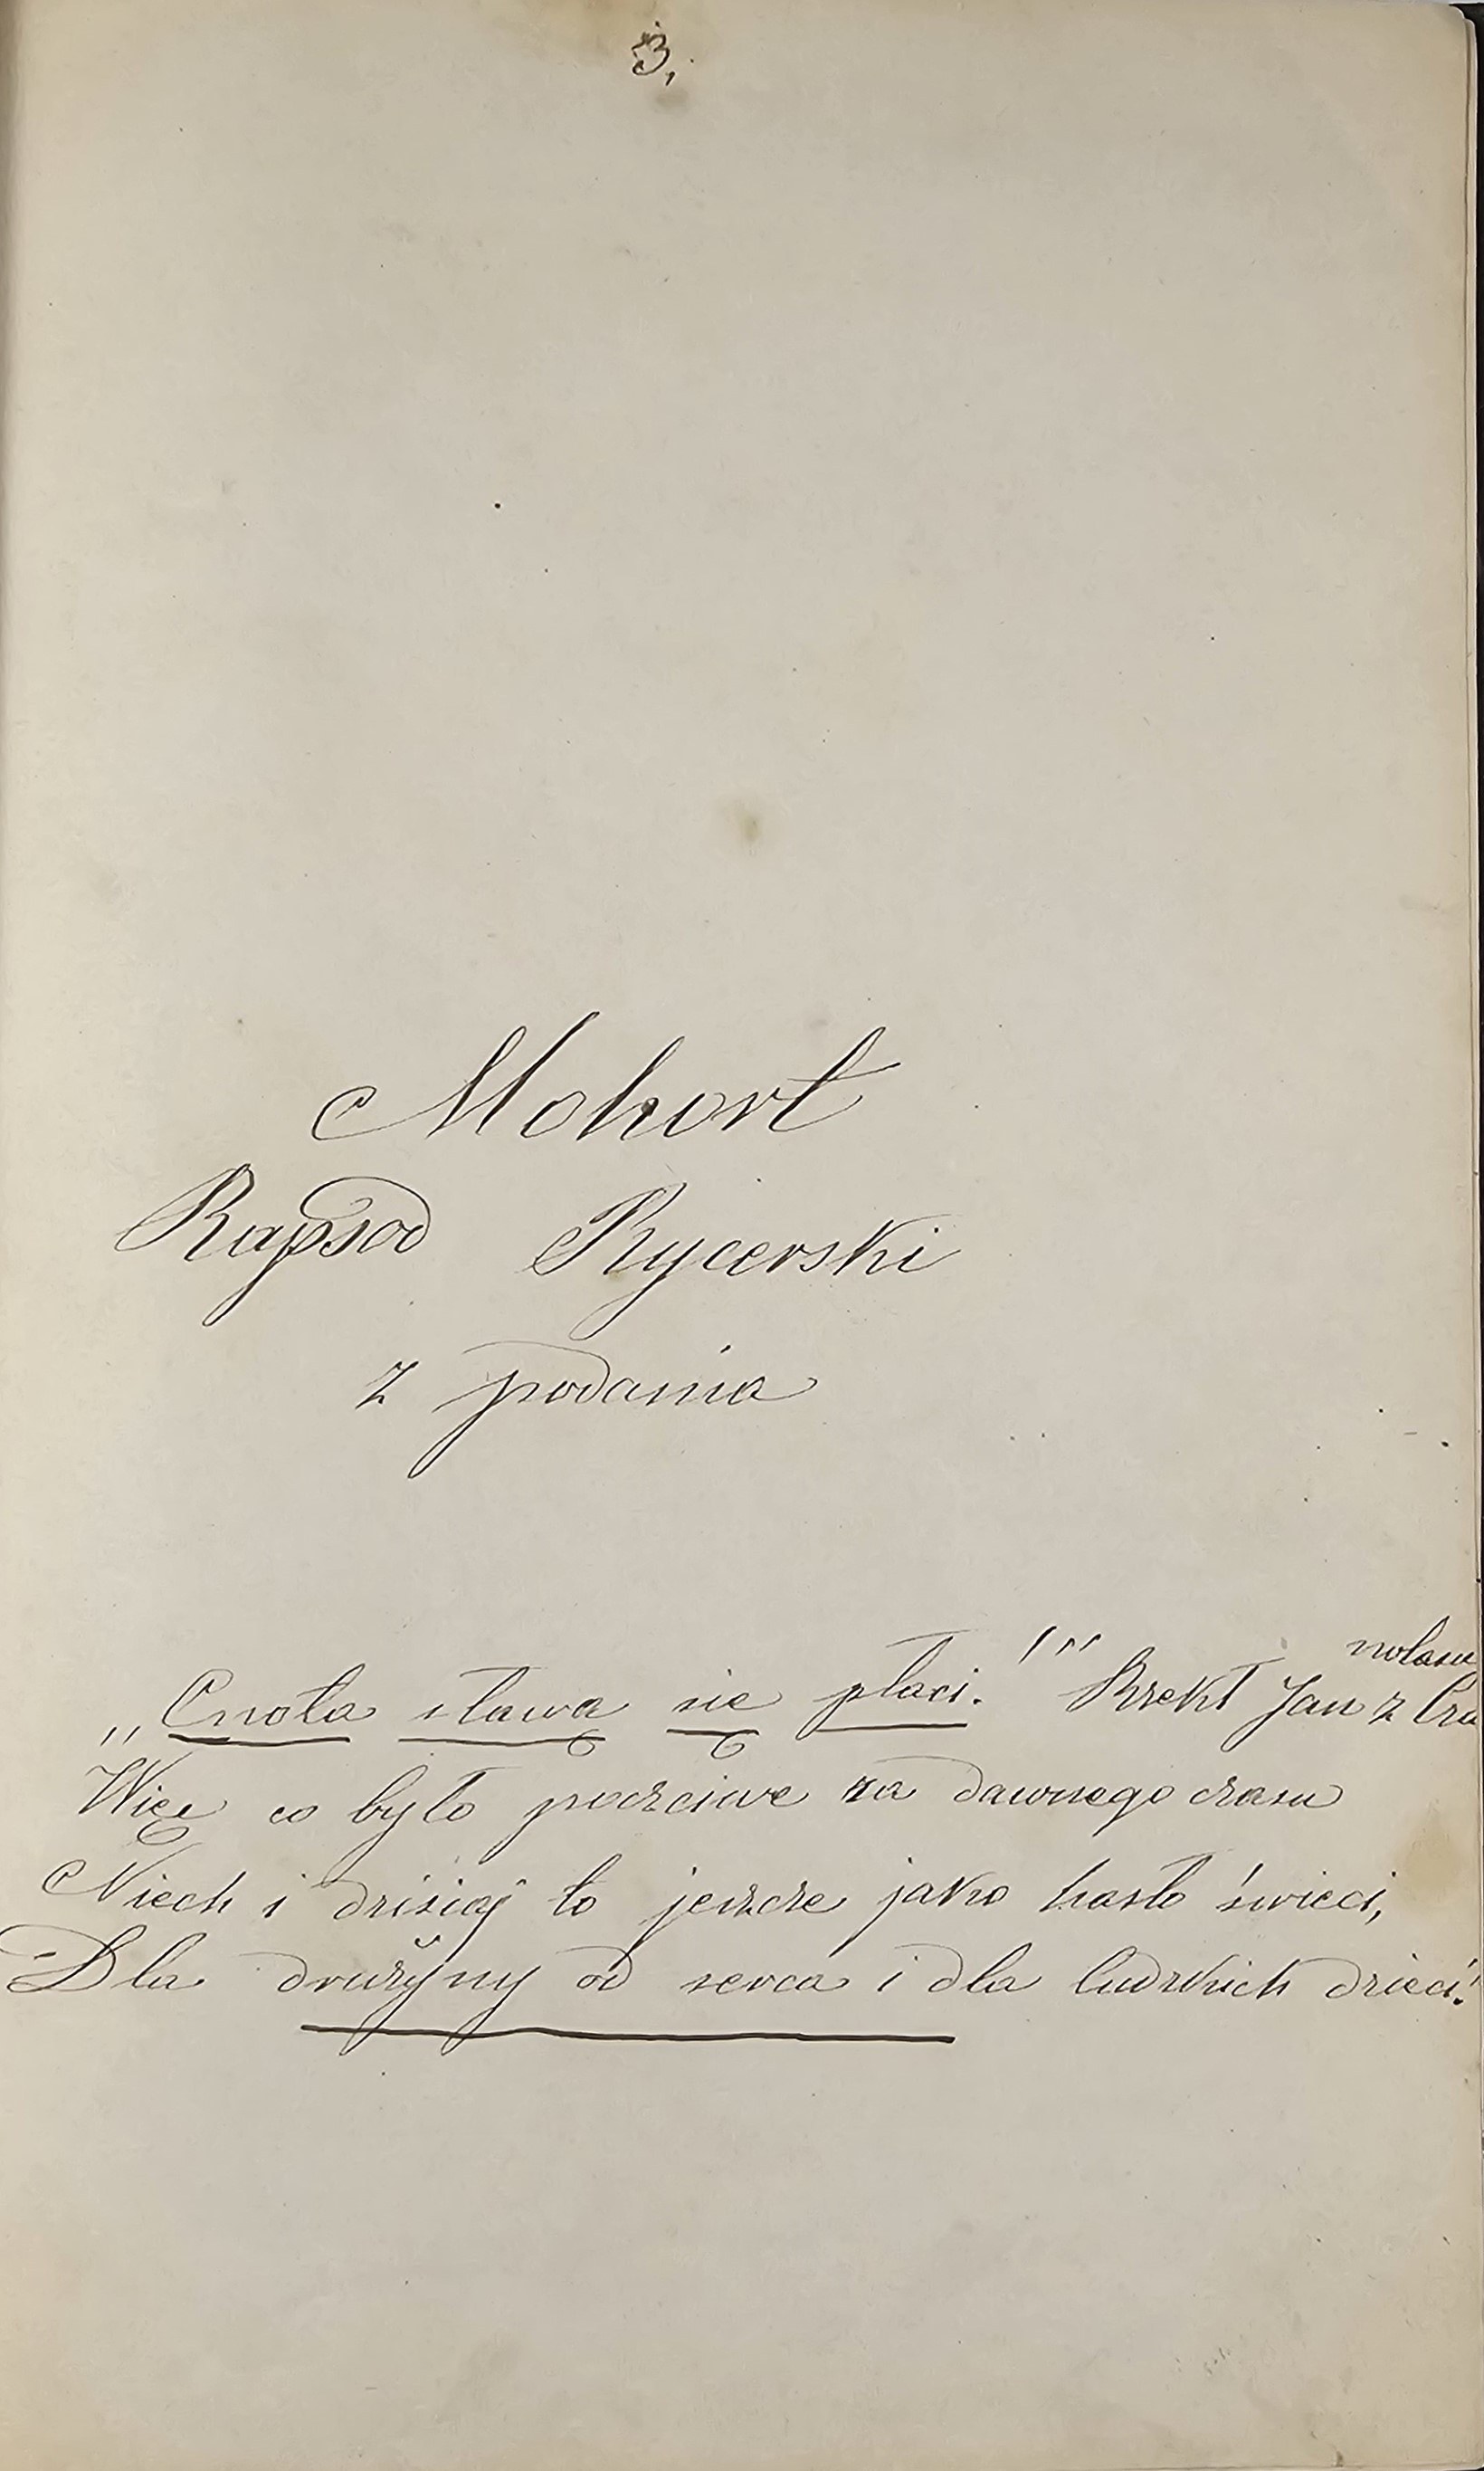 3,
Mohort
Rapsod Rycerski
z podania
nolasu
„Cnota sławą się płaci.!" Rzekł Jan z Cza
Więc co było poczciwe za dawnego czasu
Niech i dzisiaj to jeszcze jako hasło świeci,
Dla drużyny od serca i dla ludzkich dzieci!